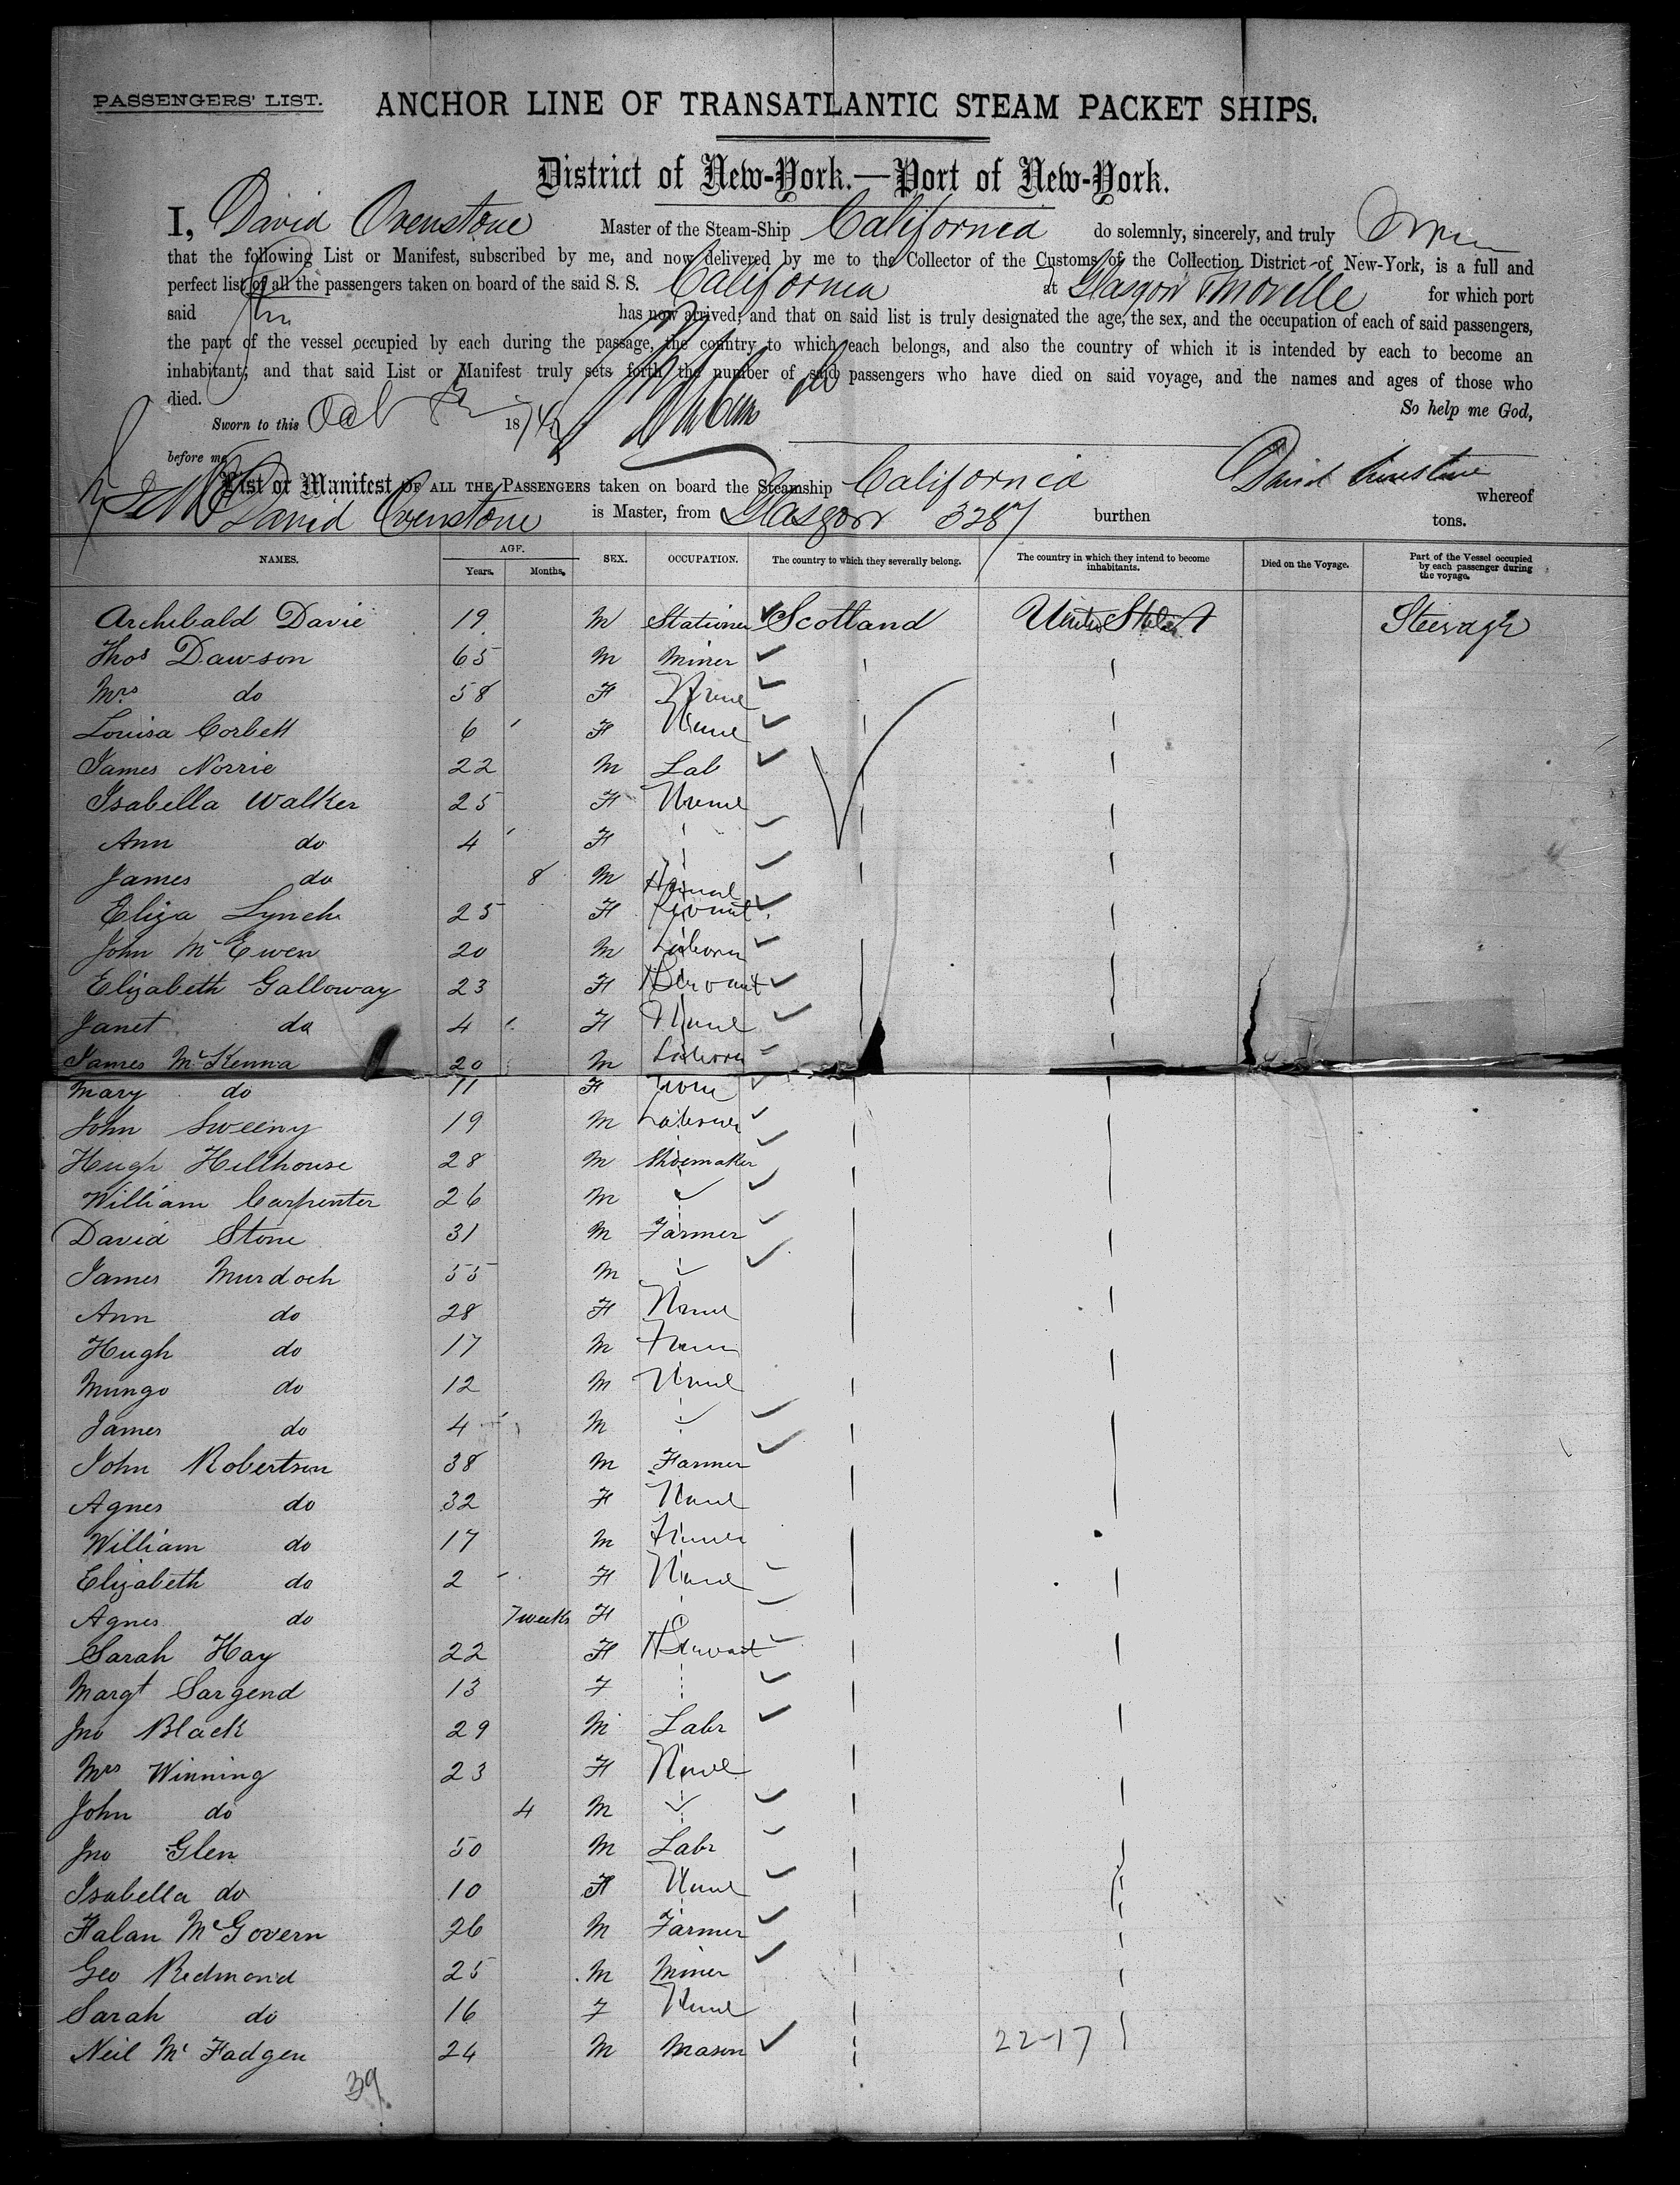 PASSENGERS' LIST. ANCHOR LINE OF TRANSATLANTIC STEAM PACKET SHIPS.
District of New-York.—Port of New-York.
I, David Ovenstone Master of the Steam-Ship California do solemnly, sincerely, and truly
that the following List or Manifest, subscribed by me, and now delivered by me to the Collector of the Customs of the Collection District of New-York, is a full and
perfect list of all the passengers taken on board of the said S. S. California at Glasgow & Moville for which port
said has now arrived; and that on said list is truly designated the age, the sex, and the occupation of each of said passengers,
the part of the vessel occupied by each during the passage, the country to which each belongs, and also the country of which it is intended by each to become an
inhabitant; and that said List or Manifest truly sets forth the number of said passengers who have died on said voyage, and the names and ages of those who
died. So help me God,
Sworn to this Oct 18
before me
List or Manifest OF ALL THE PASSENGERS taken on board the Steamship California David Ovenstone whereof
David Ovenstone is Master, from Glasgow 3287 burthen tons.
NAMES. AGE. Years. Months. SEX. OCCUPATION. The country to which they severally belong. The country in which they intend to become inhabitants. Died on the Voyage. Part of the Vessel occupied by each passenger during the voyage.
Archibald Davie 19 M Stationer Scotland United States Steerage
Thos Dawson 65 M Miner
Mrs do 58 F None
Louisa Corbett 6 F None
James Norrie 22 M Lab
Isabella Walker 25 F None
Ann do 4 F
James do 8 M
Eliza Lynch 25 F Servant
John McEwen 20 M Laborer
Elizabeth Galloway 23 F Servant
Janet do 4 F None
James McKenna 20 M Laborer
Mary do 11 F None
John Sweeny 19 M Laborer
Hugh Hillhouse 28 M Shoemaker
William Carpenter 26 M
David Stone 31 M Farmer
James Murdoch 55 M
Ann do 28 F None
Hugh do 17 M Farmer
Mungo do 12 M None
James do 4 M
John Robertson 38 M Farmer
Agnes do 32 F None
William do 17 M Farmer
Elizabeth do 2 F None
Agnes do 7 weeks F
Sarah Hay 22 F Servant
Margt Sargend 13 F
Jno Black 29 M Labr
Mrs Winning 23 F None
John do 4 M
Jno Glen 50 M Labr
Isabella do 10 F None
Falan McGovern 26 M Farmer
Geo Redmond 25 M Miner
Sarah do 16 F None
Neil McFadgen 24 M Mason 22-17
39